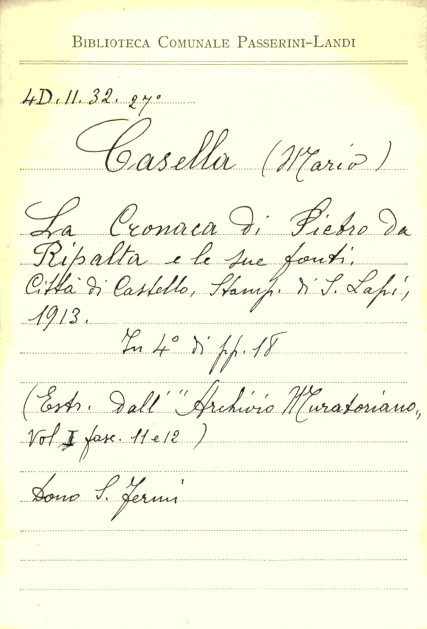 BIBLIOTECA COMUNALE PASSERINI-LANDI
4D. II. 32. 27°
Casella (Mario)
La Cronaca di Pietro da
Ripalta e le sue fonti.
Città di Castello, Stamp. di S. Lapi,
1913.
In 4° di pp. 18
(Estr. dall' "Archivio Muratoriano„
Vol I fasc. 11 e 12 )
Dono S. Fermi